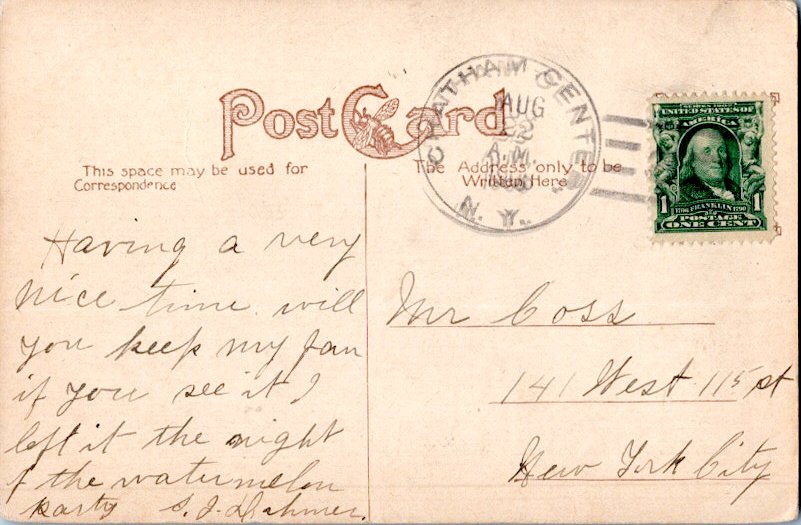 Post Card
This space may be used for
Correspondence
The Address only to be
Written Here
CHATHAM CENTER
AUG
22
A.M.
N.Y.
SERIES 1902
UNITED STATES OF
AMERICA
1 1
1706 FRANKLIN 1790
POSTAGE
ONE CENT
Having a very
nice time. will
you keep my fan
if you see it I
left it the night
of the watermelon
party S. J.
Mr Coss
141 West 115 st
New York City